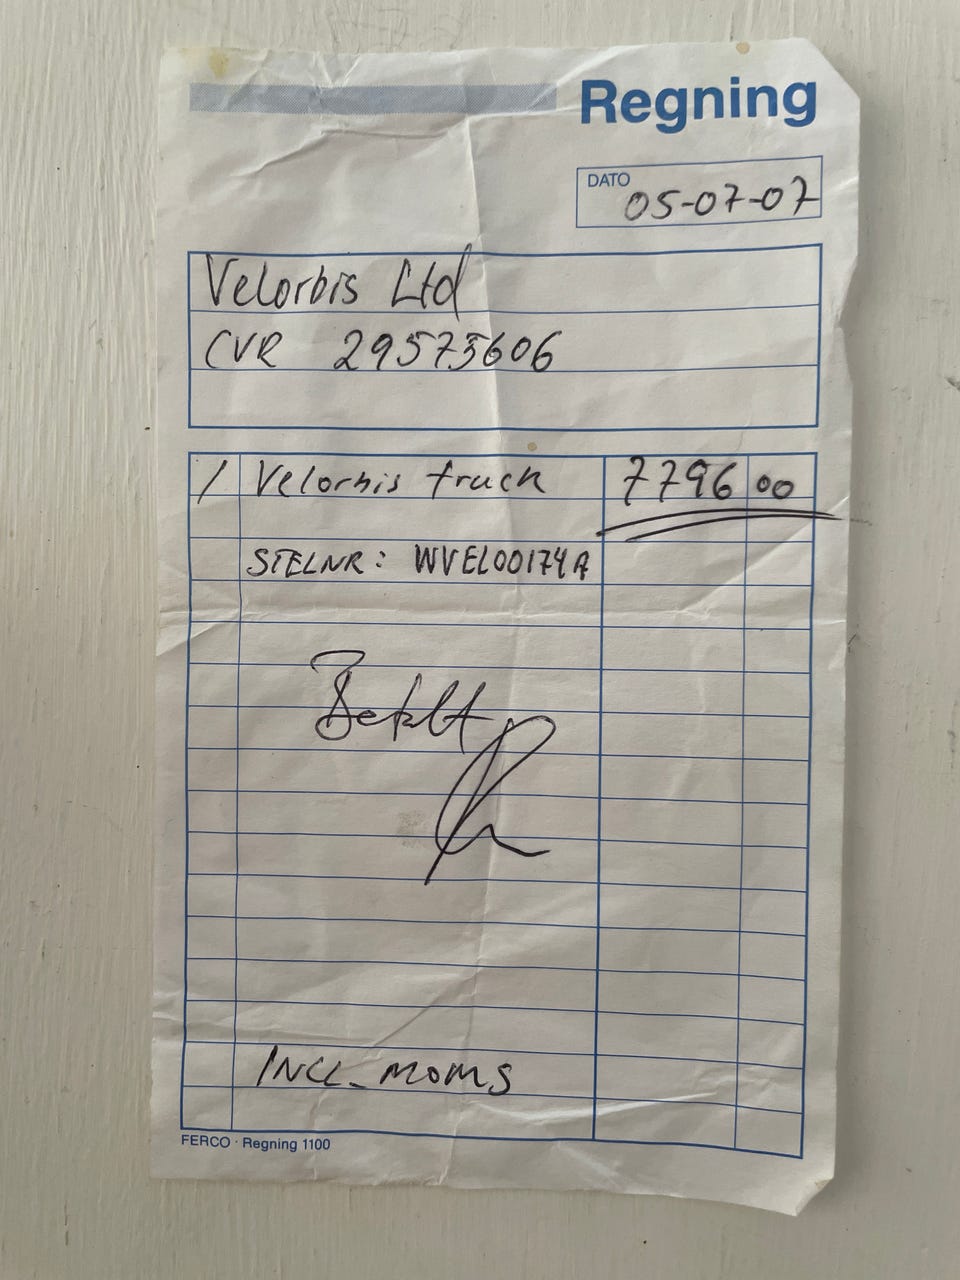 Regning
DATO 05-07-07
Velorbis Ltd
CVR 29573606
1 Velorbis truck 7796 00
STELNR: WVEL00174A
Betalt
INCL. MOMS
FERCO · Regning 1100